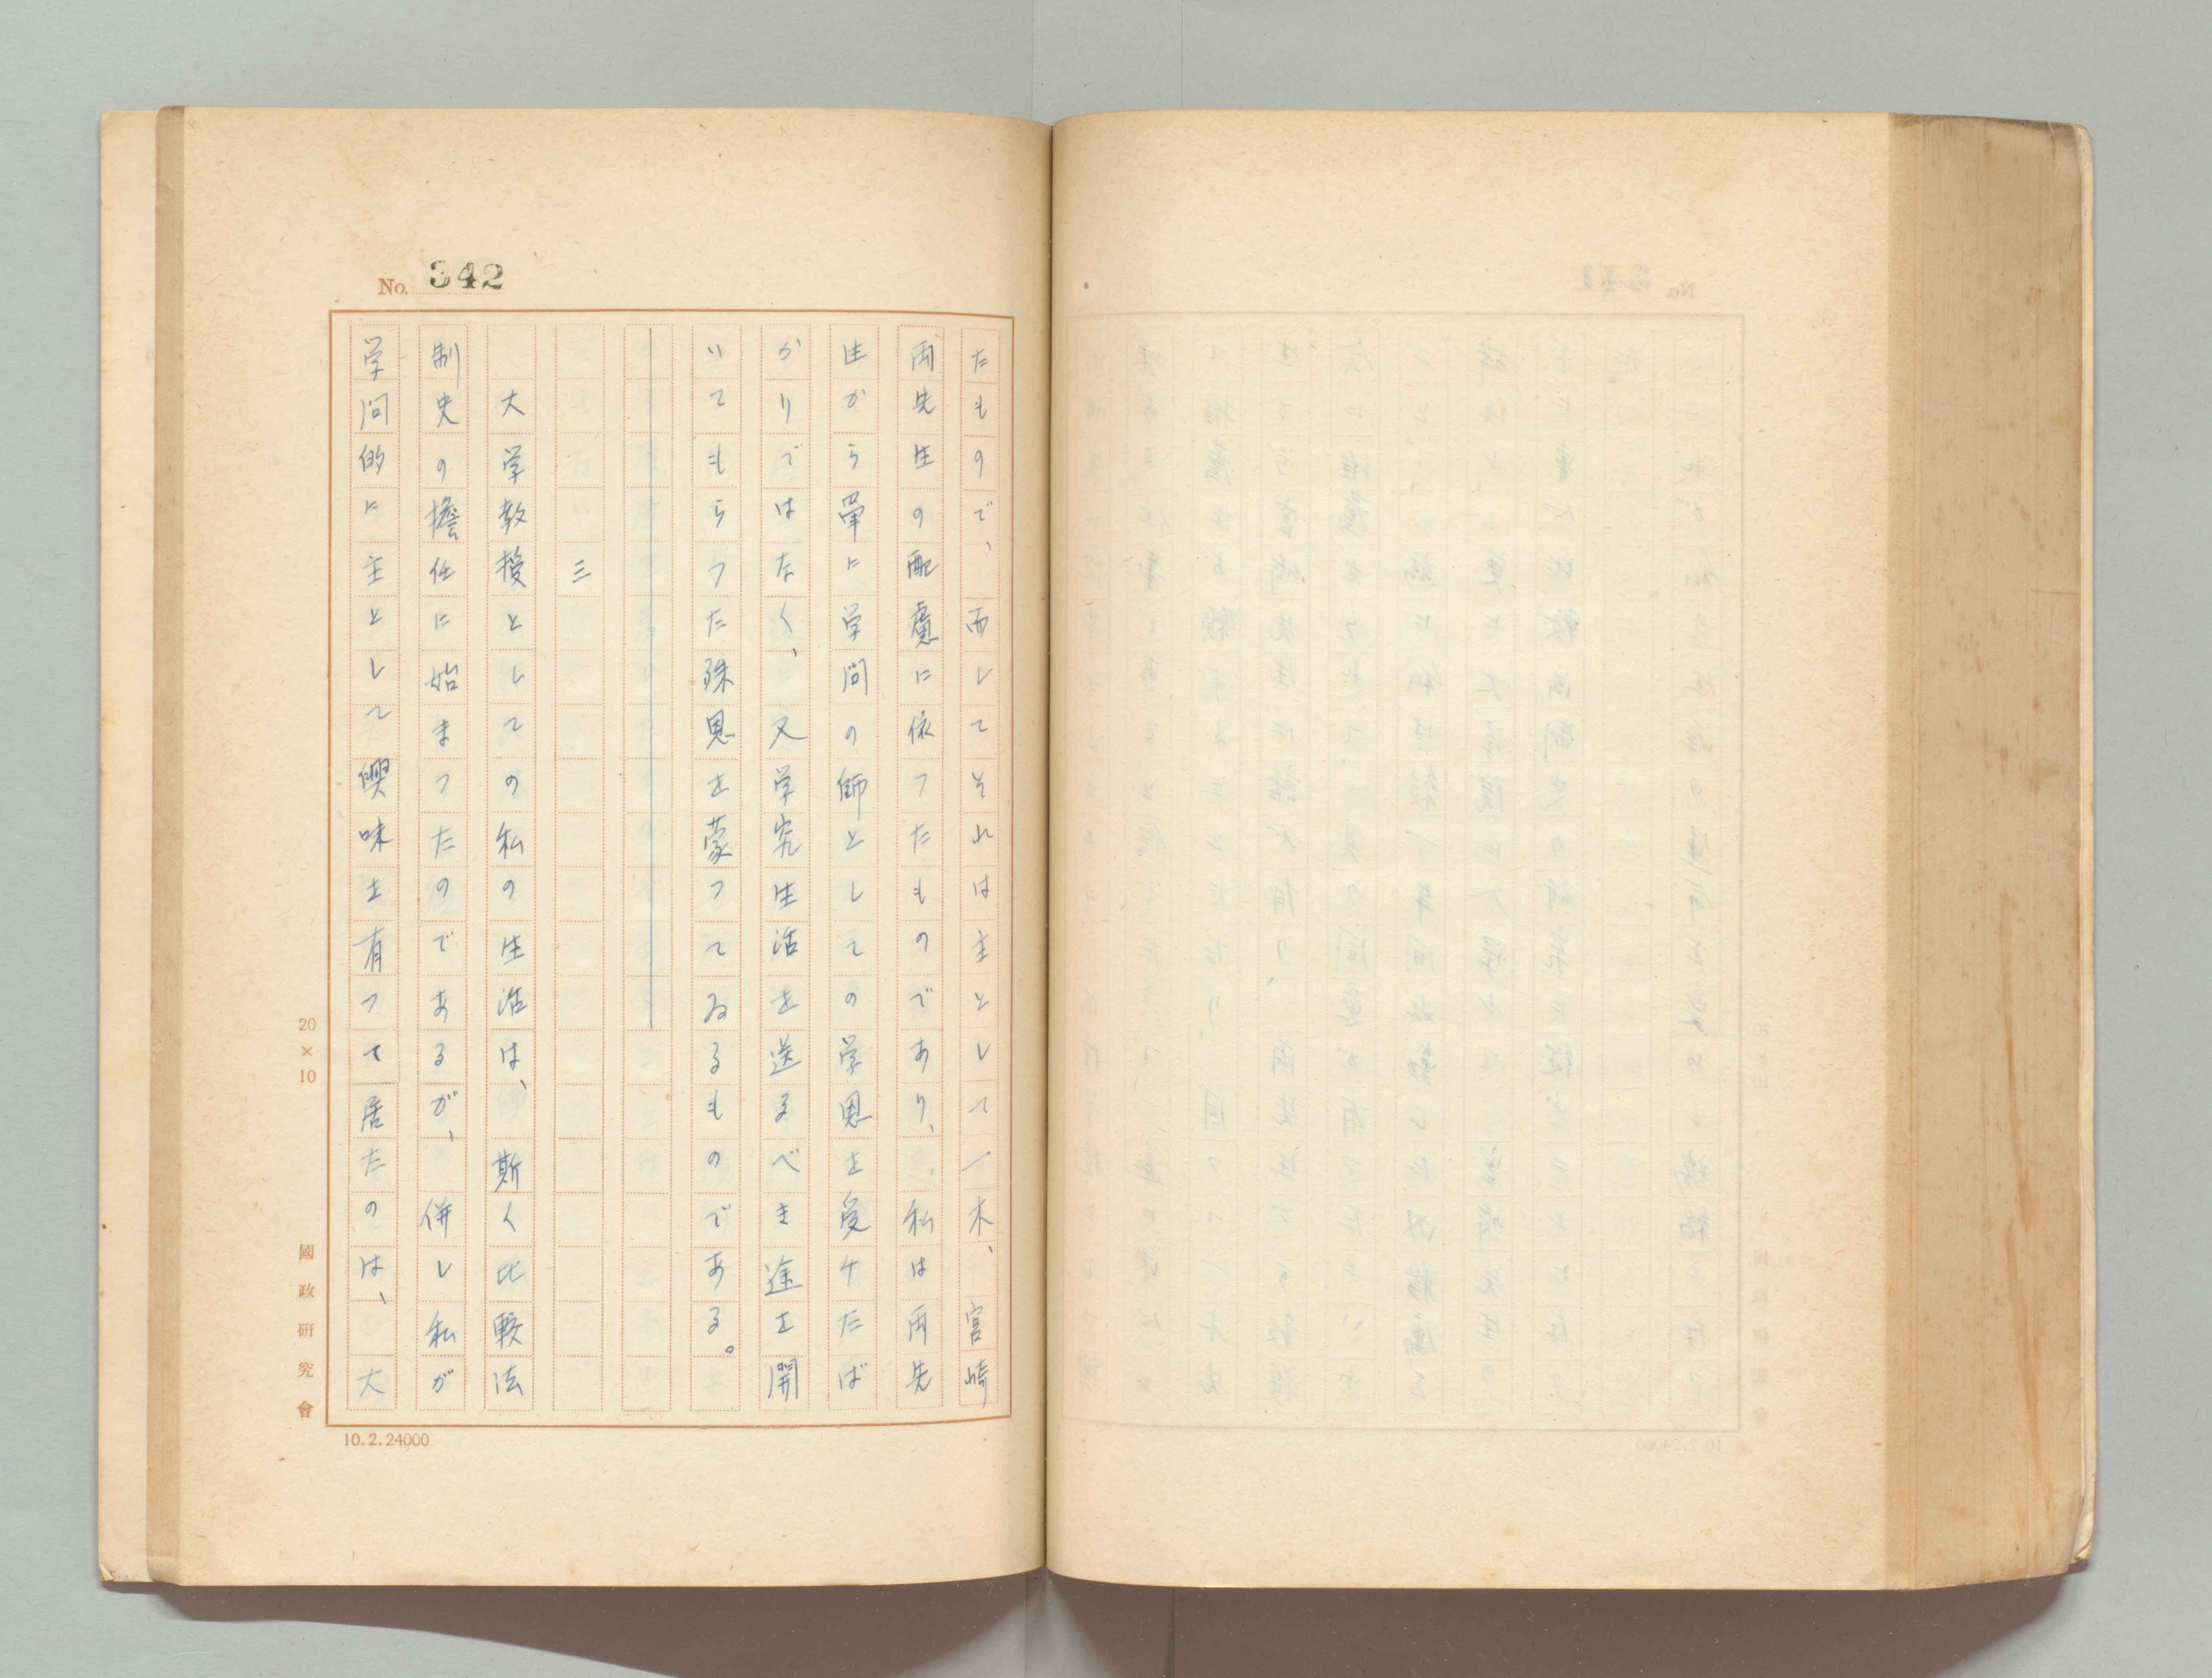 No. 342
たもので、而してそれは主として一木、宮崎
両先生の配慮に依つたものであり、私は両先
生から単に学問の師としての学恩を受けたば
かりではなく、又学究生活を送るべき途を開
いてもらつた殊恩を蒙つてゐるものである。
三
大学教授としての私の生活は、斯く比較法
制史の擔任に始まつたのであるが、併し私が
学問的に主として興味を有つて居たのは、大
20×10
國政研究會
10.2.24000